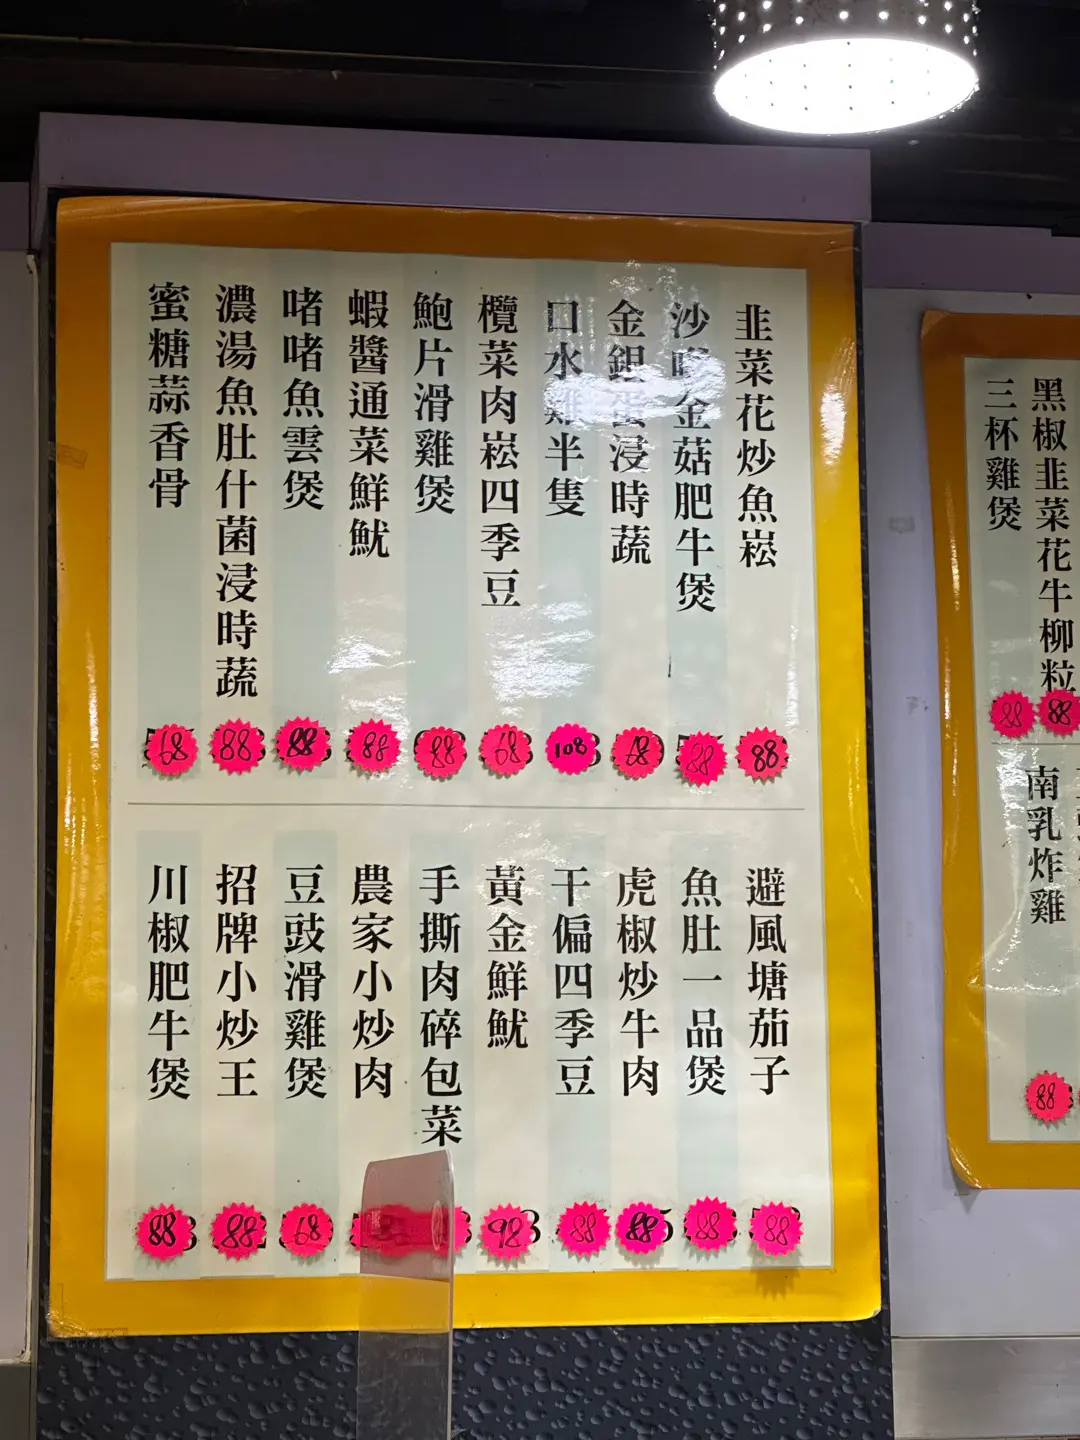 韭菜花炒魚崧
88
沙嗲金菇肥牛煲
88
金銀蛋浸時蔬
68
口水雞半隻
108
欖菜肉崧四季豆
68
鮑片滑雞煲
88
蝦醬通菜鮮魷
88
啫啫魚雲煲
88
濃湯魚肚什菌浸時蔬
88
蜜糖蒜香骨
68
避風塘茄子
88
魚肚一品煲
88
虎椒炒牛肉
88
干偏四季豆
88
黃金鮮魷
98
手撕肉碎包菜
農家小炒肉
豆豉滑雞煲
68
招牌小炒王
88
川椒肥牛煲
88
黑椒韭菜花牛柳粒
88
三杯雞煲
88
南乳炸雞
88